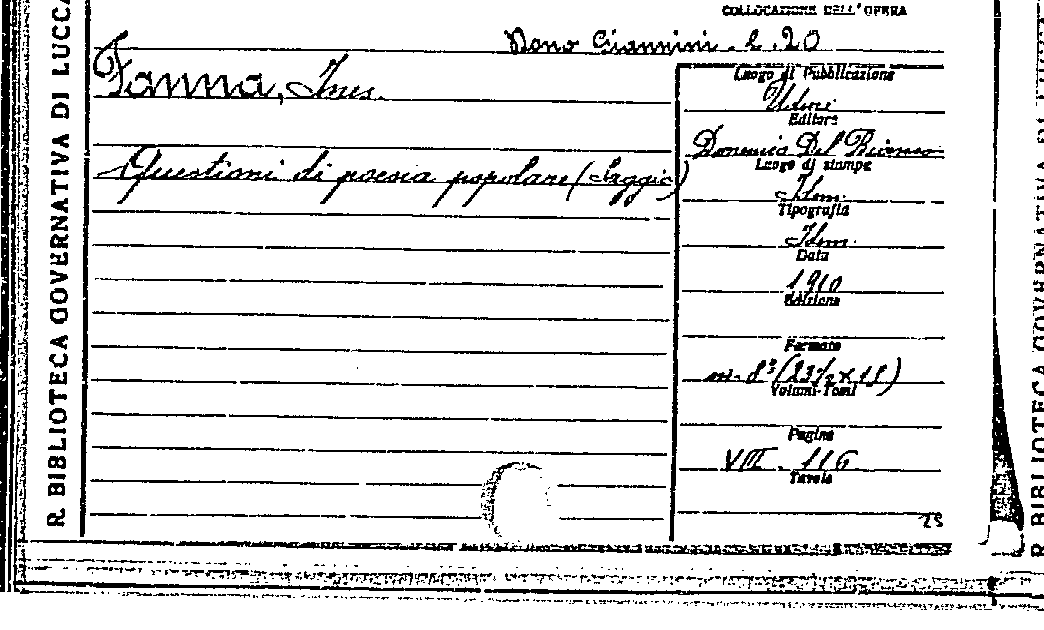 R. BIBLIOTECA GOVERNATIVA DI LUCCA
COLLOCAZIONE DELL'OPERA
Dono Giannini. 2. 20
Fanna, Ines.
Questioni di poesia popolare (Saggio)
Luogo di Pubblicazione
Udine
Editore
Domenico Del Bianco
Luogo di stampa
Idem.
Tipografia
Idem.
Data
1910
Edizione
Formato
in-8° (23½ x 15)
Volumi-Tomi
Pagine
VIII. 116
Tavole
25